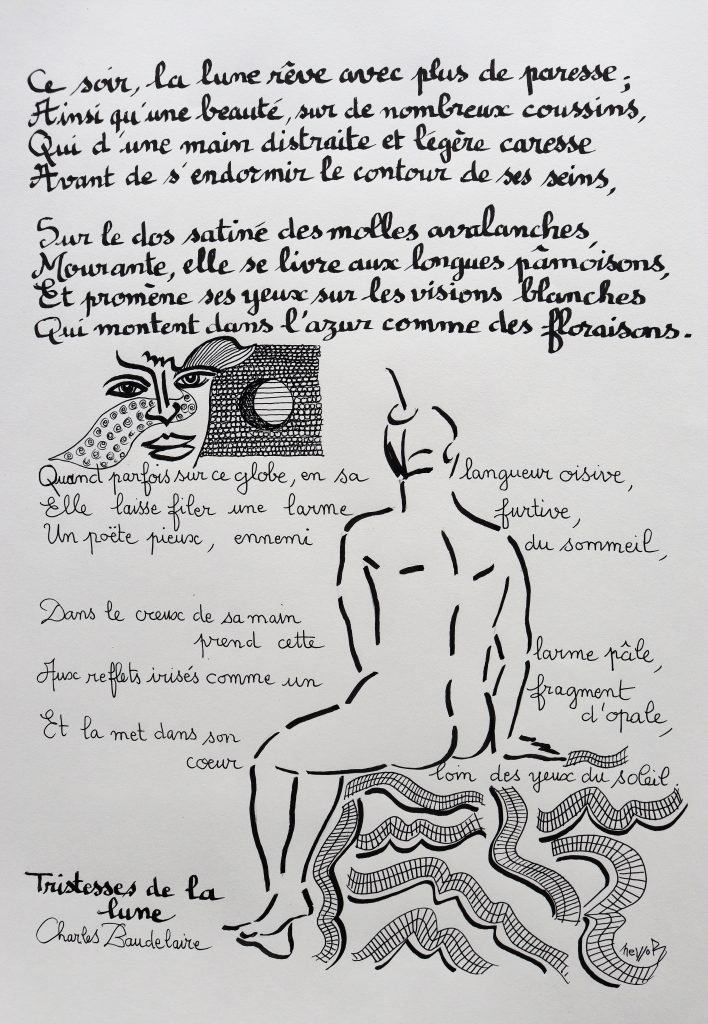 Ce soir, la lune rêve avec plus de paresse ;
Ainsi qu'une beauté, sur de nombreux coussins,
Qui d'une main distraite et légère caresse
Avant de s'endormir le contour de ses seins,
Sur le dos satiné des molles avalanches,
Mourante, elle se livre aux longues pâmoisons,
Et promène ses yeux sur les visions blanches
Qui montent dans l'azur comme des floraisons.
Quand parfois sur ce globe, en sa langueur oisive,
Elle laisse filer une larme furtive,
Un poëte pieux, ennemi du sommeil,
Dans le creux de sa main
prend cette larme pâle,
Aux reflets irisés comme un fragment
d'opale,
Et la met dans son
coeur loin des yeux du soleil.
Tristesses de la
lune
Charles Baudelaire